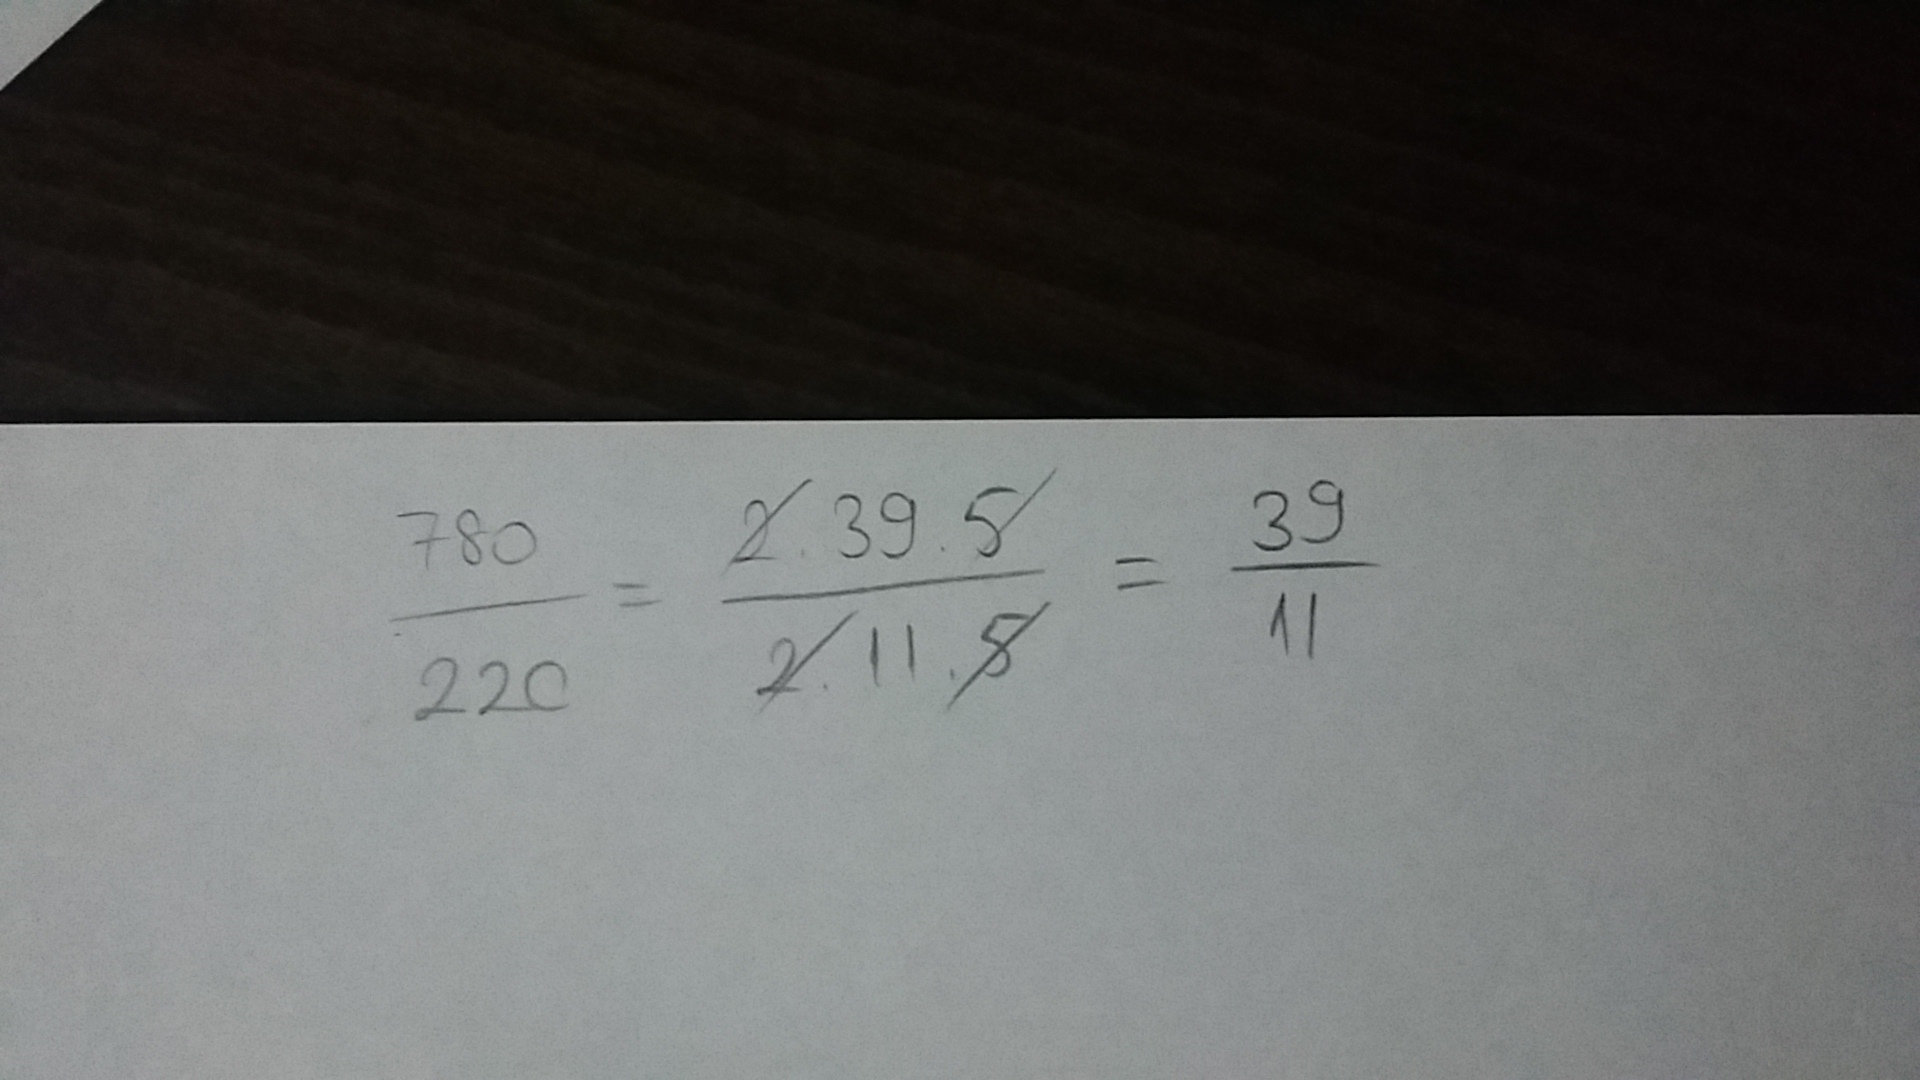 780/220 = 2.39.5/2.11.5 = 39/11